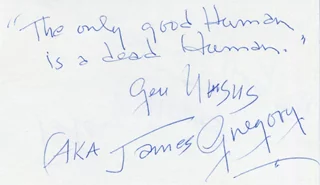 "The only good Human
is a dead Human."
Gen Ursus
(AKA James Gregory